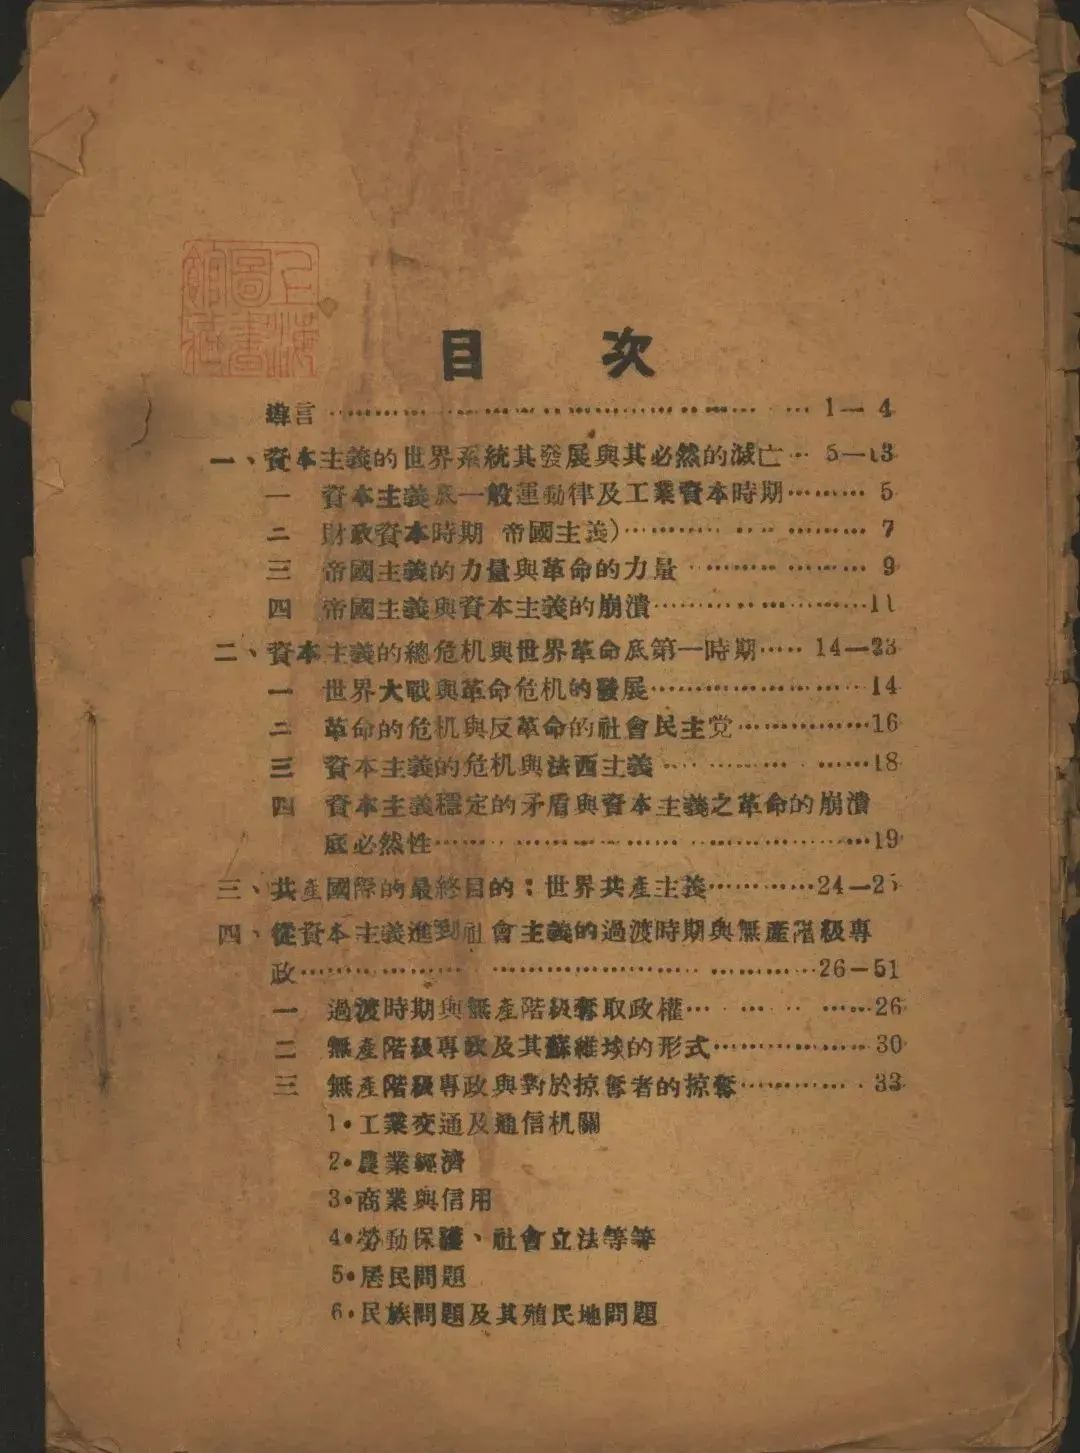 上海
圖書
館藏
目 次
導言 1—4
一、資本主義的世界系統其發展與其必然的滅亡 5—13
一 資本主義底一般運動律及工業資本時期 5
二 財政資本時期 帝國主義) 7
三 帝國主義的力量與革命的力量 9
四 帝國主義與資本主義的崩潰 11
二、資本主義的總危机與世界革命底第一時期 14—23
一 世界大戰與革命危机的發展 14
二 革命的危机與反革命的社會民主党 16
三 資本主義的危机與法西主義 18
四 資本主義穩定的矛盾與資本主義之革命的崩潰
底必然性 19
三、共產國際的最終目的：世界共產主義 24—25
四、從資本主義進到社會主義的過渡時期與無產階級專
政 26—51
一 過渡時期與無產階級奪取政權 26
二 無產階級專政及其蘇維埃的形式 30
三 無產階級專政與對於掠奪者的掠奪 33
1·工業交通及通信机關
2·農業經濟
3·商業與信用
4·勞動保護、社會立法等等
5·居民問題
6·民族問題及其殖民地問題